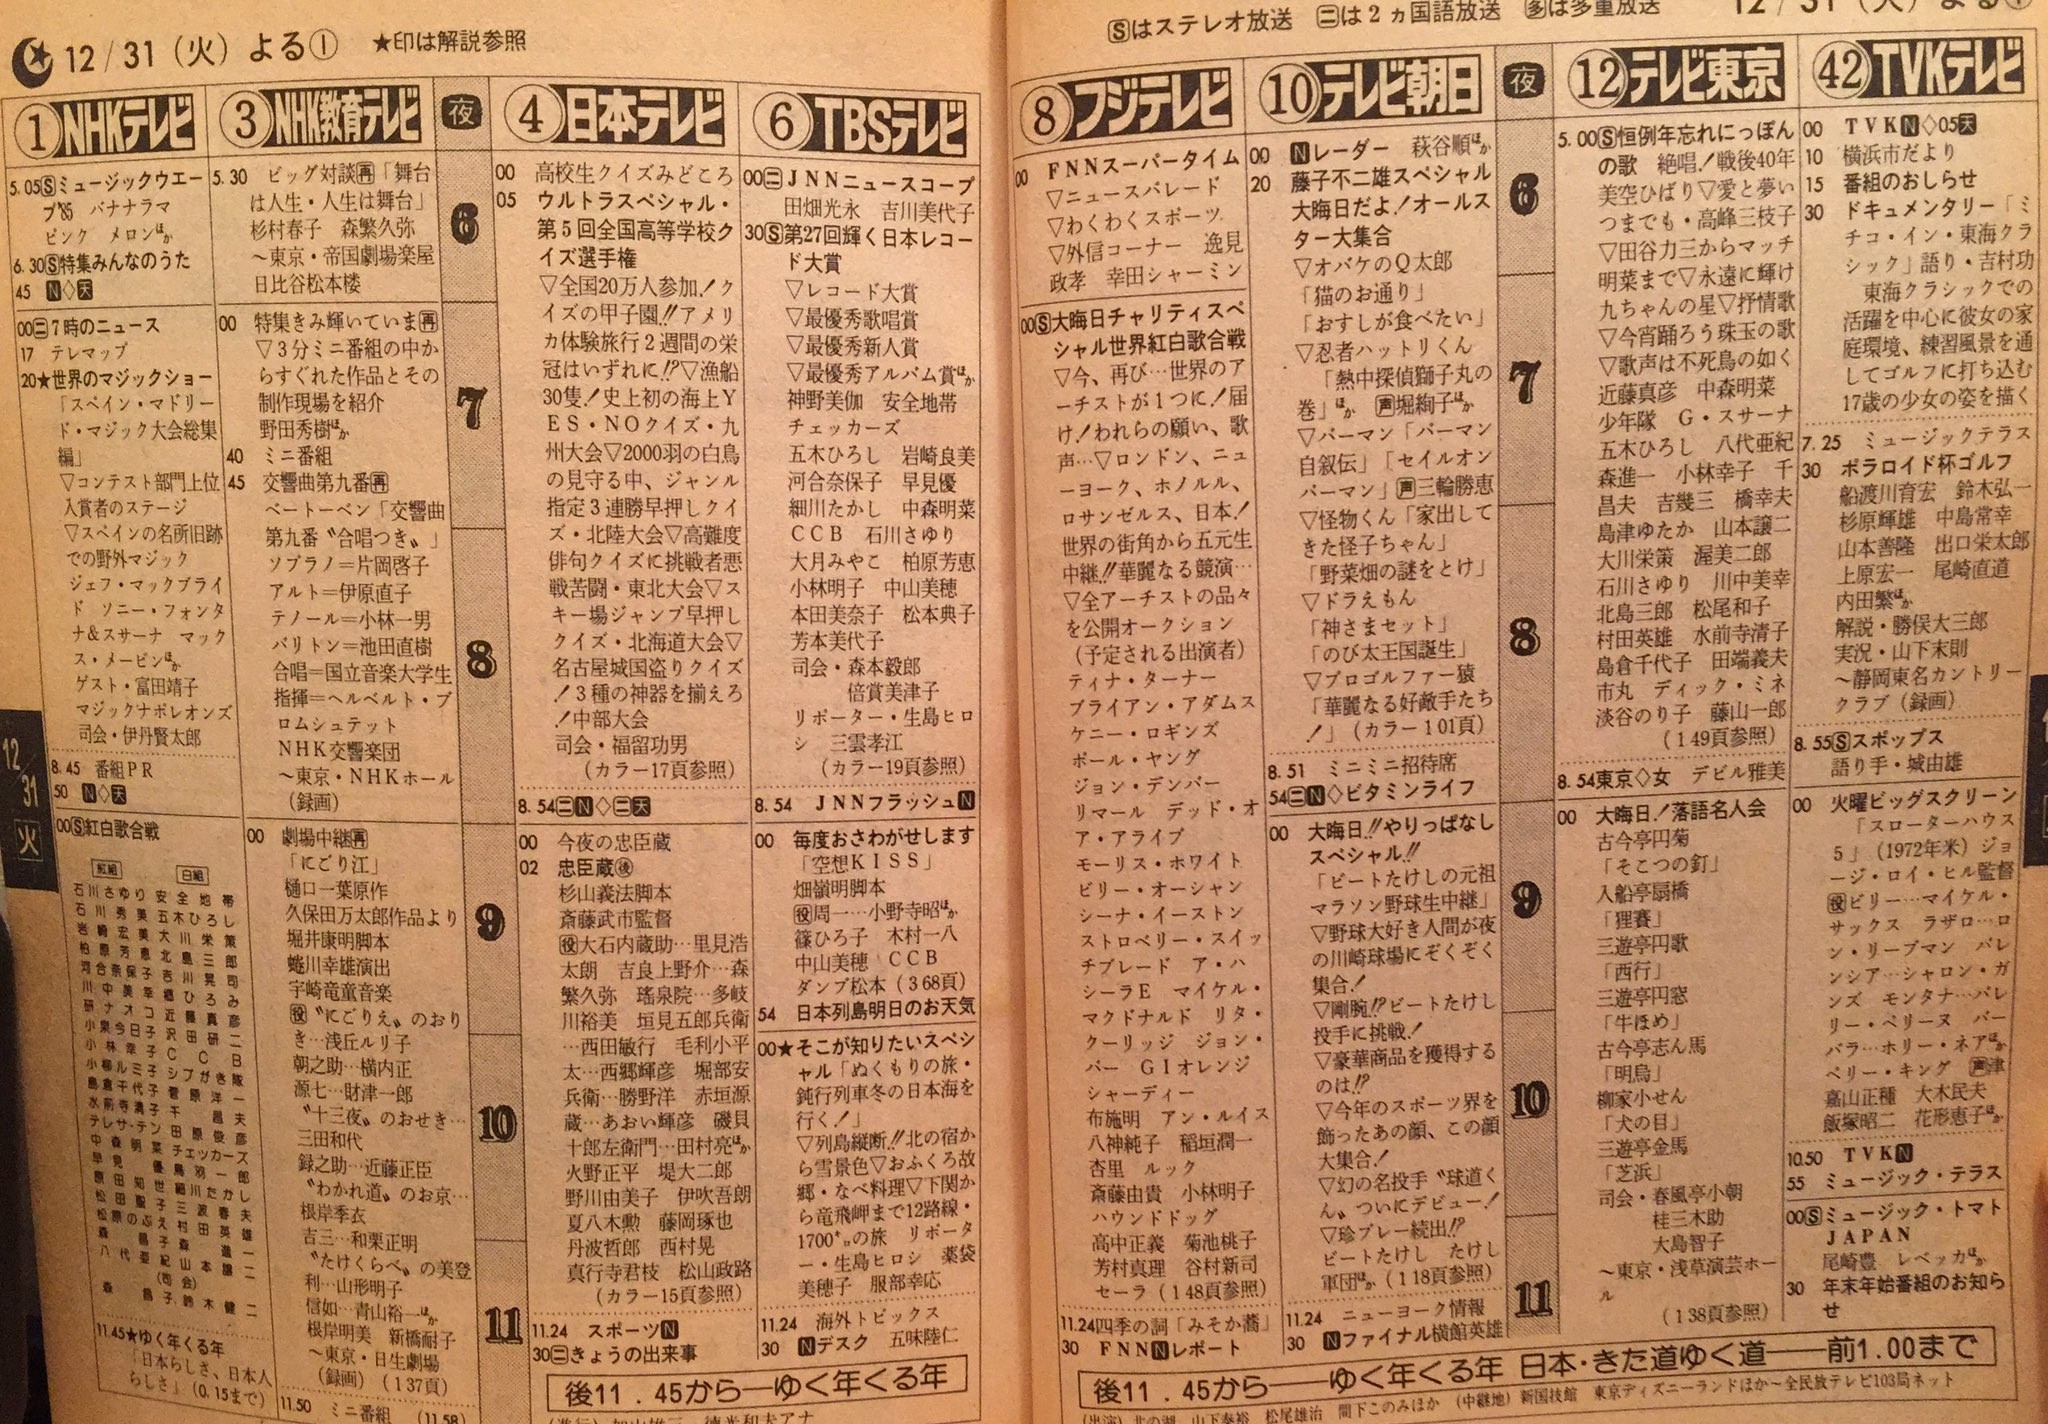 12/31（火）よる① ★印は解説参照
① NHKテレビ
5.05Ⓢミュージックウエー
ブ'85 バナナラマ
ピンク メロンほか
6.30Ⓢ特集みんなのうた
45 N◇天
00㊁7時のニュース
17 テレマップ
20★世界のマジックショー
「スペイン・マドリー
ド・マジック大会総集
編」
▽コンテスト部門上位
入賞者のステージ
▽スペインの名所旧跡
での野外マジック
ジェフ・マックブライ
ド ソニー・フォンタ
ナ&スサーナ マック
ス・メービンほか
ゲスト・富田靖子
マジックナポレオンズ
司会・伊丹賢太郎
8.45 番組PR
50 N◇天
00Ⓢ紅白歌合戦
紅組 白組
石川さゆり 安全地帯
石川秀美 五木ひろし
岩崎宏美 大川栄策
柏原芳恵 北島三郎
河合奈保子 吉川晃司
川中美幸 郷ひろみ
研ナオコ 近藤真彦
小泉今日子 沢田研二
小林幸子 CCB
小柳ルミ子 シブがき隊
島倉千代子 菅原洋一
水前寺清子 千昌夫
テレサ・テン 田原俊彦
中森明菜 チェッカーズ
早見優 鳥羽一郎
原田知世 細川たかし
松田聖子 三波春夫
松原のぶえ 村田英雄
森昌子 森進一
八代亜紀 山本譲二
(司会)
森昌子 鈴木健二
11.45★ゆく年くる年
「日本らしさ、日本人
らしさ」(0.15まで)
③ NHK教育テレビ
5.30 ビッグ対談再「舞台
は人生・人生は舞台」
杉村春子 森繁久弥
～東京・帝国劇場楽屋
日比谷松本楼
00 特集きみ輝いていま再
▽3分ミニ番組の中か
らすぐれた作品とその
制作現場を紹介
野田秀樹ほか
40 ミニ番組
45 交響曲第九番再
ベートーベン「交響曲
第九番〝合唱つき〟」
ソプラノ＝片岡啓子
アルト＝伊原直子
テノール＝小林一男
バリトン＝池田直樹
合唱＝国立音楽大学生
指揮＝ヘルベルト・ブ
ロムシュテット
NHK交響楽団
～東京・NHKホール
（録画）
00 劇場中継再
「にごり江」
樋口一葉原作
久保田万太郎作品より
堀井康明脚本
蜷川幸雄演出
宇崎竜童音楽
役〝にごりえ〟のおり
き…浅丘ルリ子
朝之助…横内正
源七…財津一郎
〝十三夜〟のおせき…
三田和代
録之助…近藤正臣
〝わかれ道〟のお京…
根岸季衣
吉三…和栗正明
〝たけくらべ〟の美登
利…山形明子
信如…青山裕一ほか
根岸明美 新橋耐子
～東京・日生劇場
（録画）（137頁）
11.50 ミニ番組 (11.58)
夜
6
7
8
9
10
11
④ 日本テレビ
00 高校生クイズみどころ
05 ウルトラスペシャル・
第5回全国高等学校ク
イズ選手権
▽全国20万人参加！ク
イズの甲子園!!アメリ
カ体験旅行2週間の栄
冠はいずれに!?▽漁船
30隻！史上初の海上Y
ES・NOクイズ・九
州大会▽2000羽の白鳥
の見守る中、ジャンル
指定3連勝早押しクイ
ズ・北陸大会▽高難度
俳句クイズに挑戦者悪
戦苦闘・東北大会▽ス
キー場ジャンプ早押し
クイズ・北海道大会▽
名古屋城国盗りクイズ
！3種の神器を揃えろ
！中部大会
司会・福留功男
（カラー17頁参照）
8.54㊁N◇㊁天
00 今夜の忠臣蔵
02 忠臣蔵㊡後
杉山義法脚本
斎藤武市監督
役大石内蔵助…里見浩
太朗 吉良上野介…森
繁久弥 瑤泉院…多岐
川裕美 垣見五郎兵衛
…西田敏行 毛利小平
太…西郷輝彦 堀部安
兵衛…勝野洋 赤垣源
蔵…あおい輝彦 磯貝
十郎左衛門…田村亮ほか
火野正平 堤大二郎
野川由美子 伊吹吾朗
夏八木勲 藤岡琢也
丹波哲郎 西村晃
真行寺君枝 松山政路
（カラー15頁参照）
11.24 スポーツN
30㊁きょうの出来事
⑥ TBSテレビ
00㊁JNNニュースコープ
田畑光永 吉川美代子
30Ⓢ第27回輝く日本レコー
ド大賞
▽レコード大賞
▽最優秀歌唱賞
▽最優秀新人賞
▽最優秀アルバム賞ほか
神野美伽 安全地帯
チェッカーズ
五木ひろし 岩崎良美
河合奈保子 早見優
細川たかし 中森明菜
CCB 石川さゆり
大月みやこ 柏原芳恵
小林明子 中山美穂
本田美奈子 松本典子
芳本美代子
司会・森本毅郎
倍賞美津子
リポーター・生島ヒロ
シ 三雲孝江
（カラー19頁参照）
8.54 JNNフラッシュN
00 毎度おさわがせします
「空想KISS」
畑嶺明脚本
役周一…小野寺昭ほか
篠ひろ子 木村一八
中山美穂 CCB
ダンプ松本（368頁）
54 日本列島明日のお天気
00★そこが知りたいスペシ
ャル「ぬくもりの旅・
鈍行列車冬の日本海を
行く！」
▽列島縦断!!北の宿か
ら雪景色▽おふくろ故
郷・なべ料理▽下関か
ら竜飛岬まで12路線・
1700㌔の旅 リポータ
ー・生島ヒロシ 薬袋
美穂子 服部幸応
11.24 海外トピックス
30 Nデスク 五味陸仁
後11.45から──ゆく年くる年
Ⓢはステレオ放送 ㊁は2ヵ国語放送 多は多重放送 12/31（火）よる①
⑧ フジテレビ
00 FNNスーパータイム
▽ニュースパレード
▽わくわくスポーツ
▽外信コーナー 逸見
政孝 幸田シャーミン
00Ⓢ大晦日チャリティスペ
シャル世界紅白歌合戦
▽今、再び…世界のア
ーチストが1つに！届
け！われらの願い、歌
声…▽ロンドン、ニュ
ーヨーク、ホノルル、
ロサンゼルス、日本！
世界の街角から五元生
中継!!華麗なる競演…
▽全アーチストの品々
を公開オークション
（予定される出演者）
ティナ・ターナー
ブライアン・アダムス
ケニー・ロギンズ
ポール・ヤング
ジョン・デンバー
リマール デッド・オ
ア・アライブ
モーリス・ホワイト
ビリー・オーシャン
シーナ・イーストン
ストロベリー・スイッ
チブレード ア・ハ
シーラE マイケル・
マクドナルド リタ・
クーリッジ ジョン・
バー GIオレンジ
シャーディー
布施明 アン・ルイス
八神純子 稲垣潤一
杏里 ルック
斎藤由貴 小林明子
ハウンドドッグ
高中正義 菊池桃子
芳村真理 谷村新司
セーラ（148頁参照）
11.24四季の詞「みそか蕎」
30 FNNNレポート
⑩ テレビ朝日
00 Nレーダー 萩谷順ほか
20 藤子不二雄スペシャル
大晦日だよ！オールス
ター大集合
▽オバケのQ太郎
「猫のお通り」
「おすしが食べたい」
▽忍者ハットリくん
「熱中探偵獅子丸の
巻」ほか 声堀絢子ほか
▽パーマン「パーマン
自叙伝」「セイルオン
パーマン」声三輪勝恵
▽怪物くん「家出して
きた怪子ちゃん」
「野菜畑の謎をとけ」
▽ドラえもん
「神さまセット」
「のび太王国誕生」
▽プロゴルファー猿
「華麗なる好敵手たち
！」（カラー101頁）
8.51 ミニミニ招待席
54㊁N◇ビタミンライフ
00 大晦日!!やりっぱなし
スペシャル!!
「ビートたけしの元祖
マラソン野球生中継」
▽野球大好き人間が夜
の川崎球場にぞくぞく
集合！
▽剛腕!?ビートたけし
投手に挑戦！
▽豪華商品を獲得する
のは!?
▽今年のスポーツ界を
飾ったあの顔、この顔
大集合！
▽幻の名投手〝球道く
ん〟ついにデビュー！
▽珍プレー続出!?
ビートたけし たけし
軍団ほか（118頁参照）
11.24 ニューヨーク情報
30 Nファイナル横館英雄
夜
6
7
8
9
10
11
⑫ テレビ東京
5.00Ⓢ恒例年忘れにっぽん
の歌 絶唱！戦後40年
美空ひばり▽愛と夢い
つまでも・高峰三枝子
▽田谷力三からマッチ
明菜まで▽永遠に輝け
九ちゃんの星▽抒情歌
▽今宵踊ろう珠玉の歌
▽歌声は不死鳥の如く
近藤真彦 中森明菜
少年隊 G・スサーナ
五木ひろし 八代亜紀
森進一 小林幸子 千
昌夫 吉幾三 橋幸夫
島津ゆたか 山本譲二
大川栄策 渥美二郎
石川さゆり 川中美幸
北島三郎 松尾和子
村田英雄 水前寺清子
島倉千代子 田端義夫
市丸 ディック・ミネ
淡谷のり子 藤山一郎
（149頁参照）
8.54東京◇女 デビル雅美
00 大晦日！落語名人会
古今亭円菊
「そこつの釘」
入船亭扇橋
「狸賽」
三遊亭円歌
「西行」
三遊亭円窓
「牛ほめ」
古今亭志ん馬
「明烏」
柳家小せん
「犬の目」
三遊亭金馬
「芝浜」
司会・春風亭小朝
桂三木助
大島智子
～東京・浅草演芸ホー
ル
（138頁参照）
㊷ TVKテレビ
00 TVKN◇05天
10 横浜市だより
15 番組のおしらせ
30 ドキュメンタリー「ミ
チコ・イン・東海クラ
シック」語り・吉村功
東海クラシックでの
活躍を中心に彼女の家
庭環境、練習風景を通
してゴルフに打ち込む
17歳の少女の姿を描く
7.25 ミュージックテラス
30 ポラロイド杯ゴルフ
船渡川育宏 鈴木弘一
杉原輝雄 中島常幸
山本善隆 出口栄太郎
上原宏一 尾崎直道
内田繁ほか
解説・勝俣大三郎
実況・山下末則
～静岡東名カントリー
クラブ（録画）
8.55Ⓢスポップス
語り手・城由雄
00 火曜ビッグスクリーン
「スローターハウス
5」（1972年米）ジョ
ージ・ロイ・ヒル監督
役ビリー…マイケル・
サックス ラザロ…ロ
ン・リーブマン バレ
ンシア…シャロン・ガ
ンズ モンタナ…バレ
リー・ペリーヌ バー
バラ…ホリー・ネアほか
ペリー・キング 声津
嘉山正種 大木民夫
飯塚昭二 花形恵子ほか
10.50 TVKN
55 ミュージック・テラス
00Ⓢミュージック・トマト
JAPAN
尾崎豊 レベッカほか
30 年末年始番組のお知ら
せ
後11.45から──ゆく年くる年 日本・きた道ゆく道──前1.00まで
（出演）北の湖 山下泰裕 松尾雄治 間下このみほか （中継地）新国技館 東京ディズニーランドほか～全民放テレビ103局ネット
12/31 火